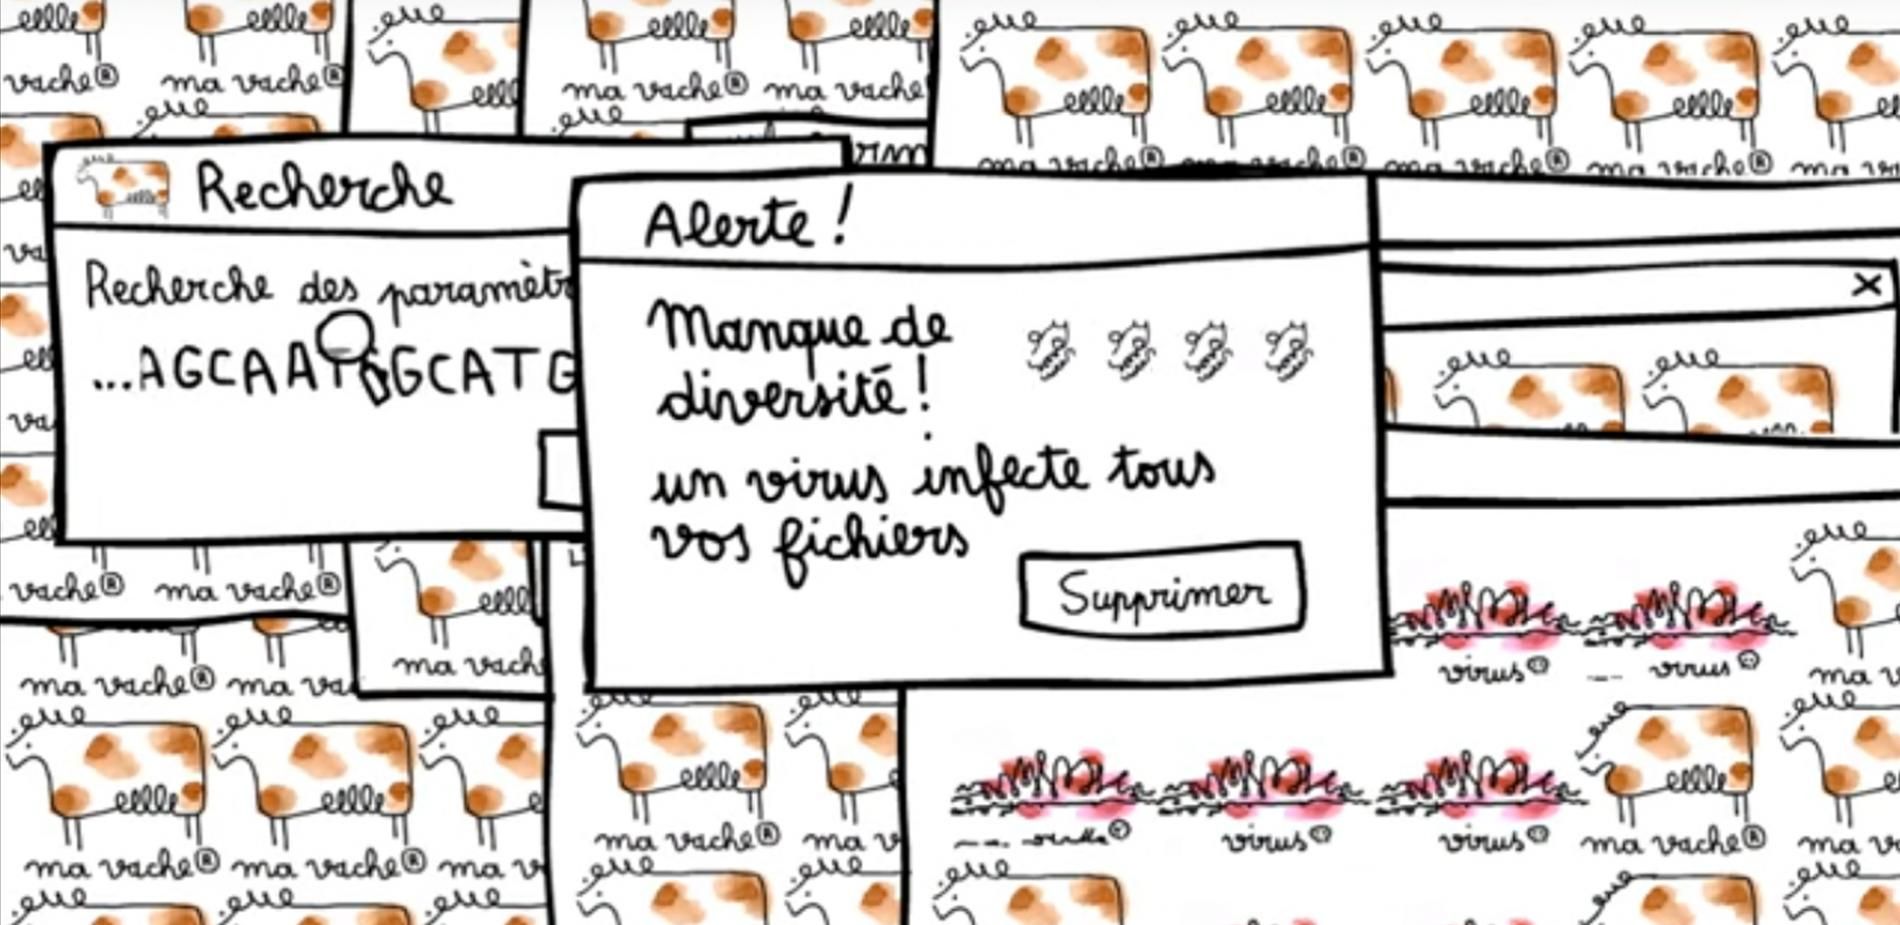 vache®
ma vache®
ma vache®
ma vache
ma vache®
ma vache®
ma vache®
ma vache®
Recherche
Recherche des paramètr
...AGCAAT GGCATG
Alerte !
Manque de
diversité !
un virus infecte tous
vos fichiers
Supprimer
×
vache®
ma vache®
ma vache®
ma va
ma vache
virus
virus
ma v
ma vache®
ma v
virus
virus
ma vache®
ma v
ma vache®
ma vache®
ma v